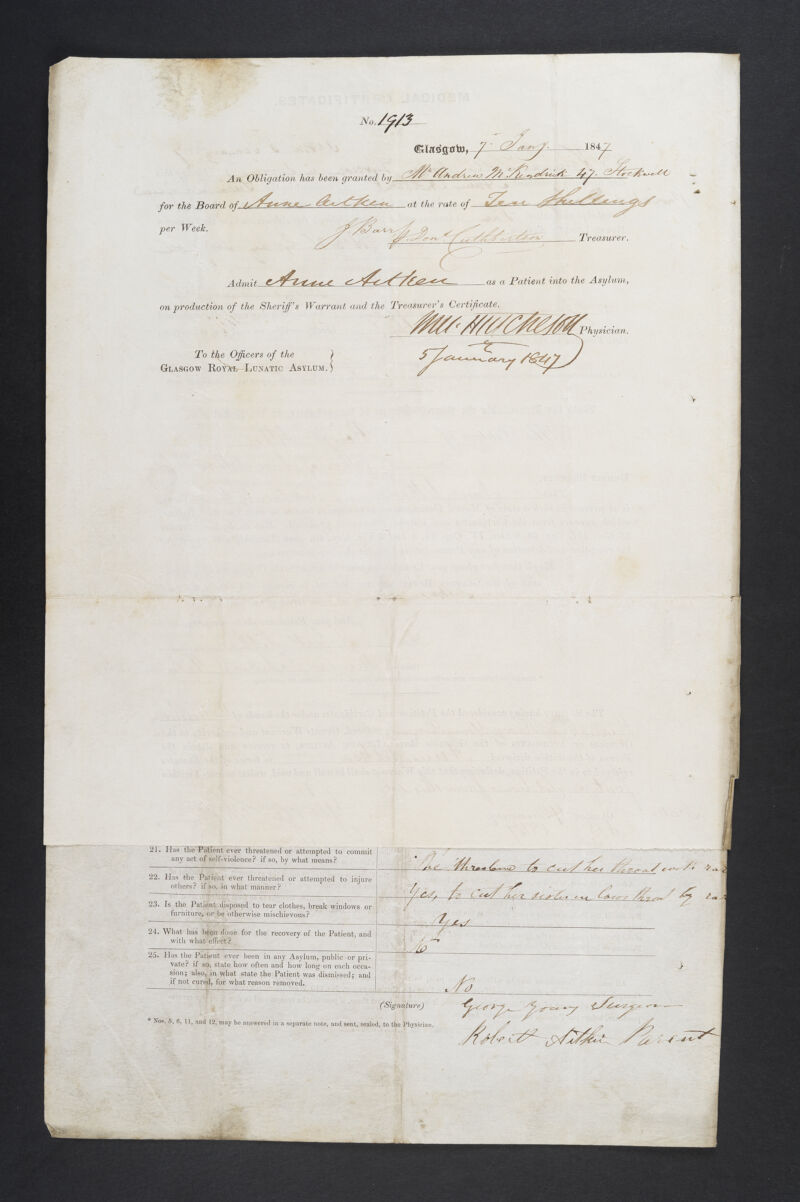 No. 1913
Glasgow, 7 Jany. 1847
An Obligation has been granted by Mr Andrew McKendrick 47 Stockwell
for the Board of Anne Aitken at the rate of Ten Shillings
per Week.
J Barr p. Don. Cuthbertson Treasurer.
Admit Anne Aitken as a Patient into the Asylum,
on production of the Sheriff's Warrant and the Treasurer's Certificate.
Wm. Hutcheson Physician.
5 January 1847
To the Officers of the
GLASGOW ROYAL LUNATIC ASYLUM.
21. Has the Patient ever threatened or attempted to commit
any act of self-violence? if so, by what means?
threatened to cut her throat with
22. Has the Patient ever threatened or attempted to injure
others? if so, in what manner?
Yes, to cut her sister in laws throat by
23. Is the Patient disposed to tear clothes, break windows or
furniture, or be otherwise mischievous?
Yes
24. What has been done for the recovery of the Patient, and
with what effect?
25. Has the Patient ever been in any Asylum, public or pri-
vate? if so, state how often and how long on each occa-
sion; also, in what state the Patient was dismissed; and
if not cured, for what reason removed.
No
(Signature) George Young Surgeon
* Nos. 5, 6, 11, and 12, may be answered in a separate note, and sent, sealed, to the Physician.
Robert Aitken Parent